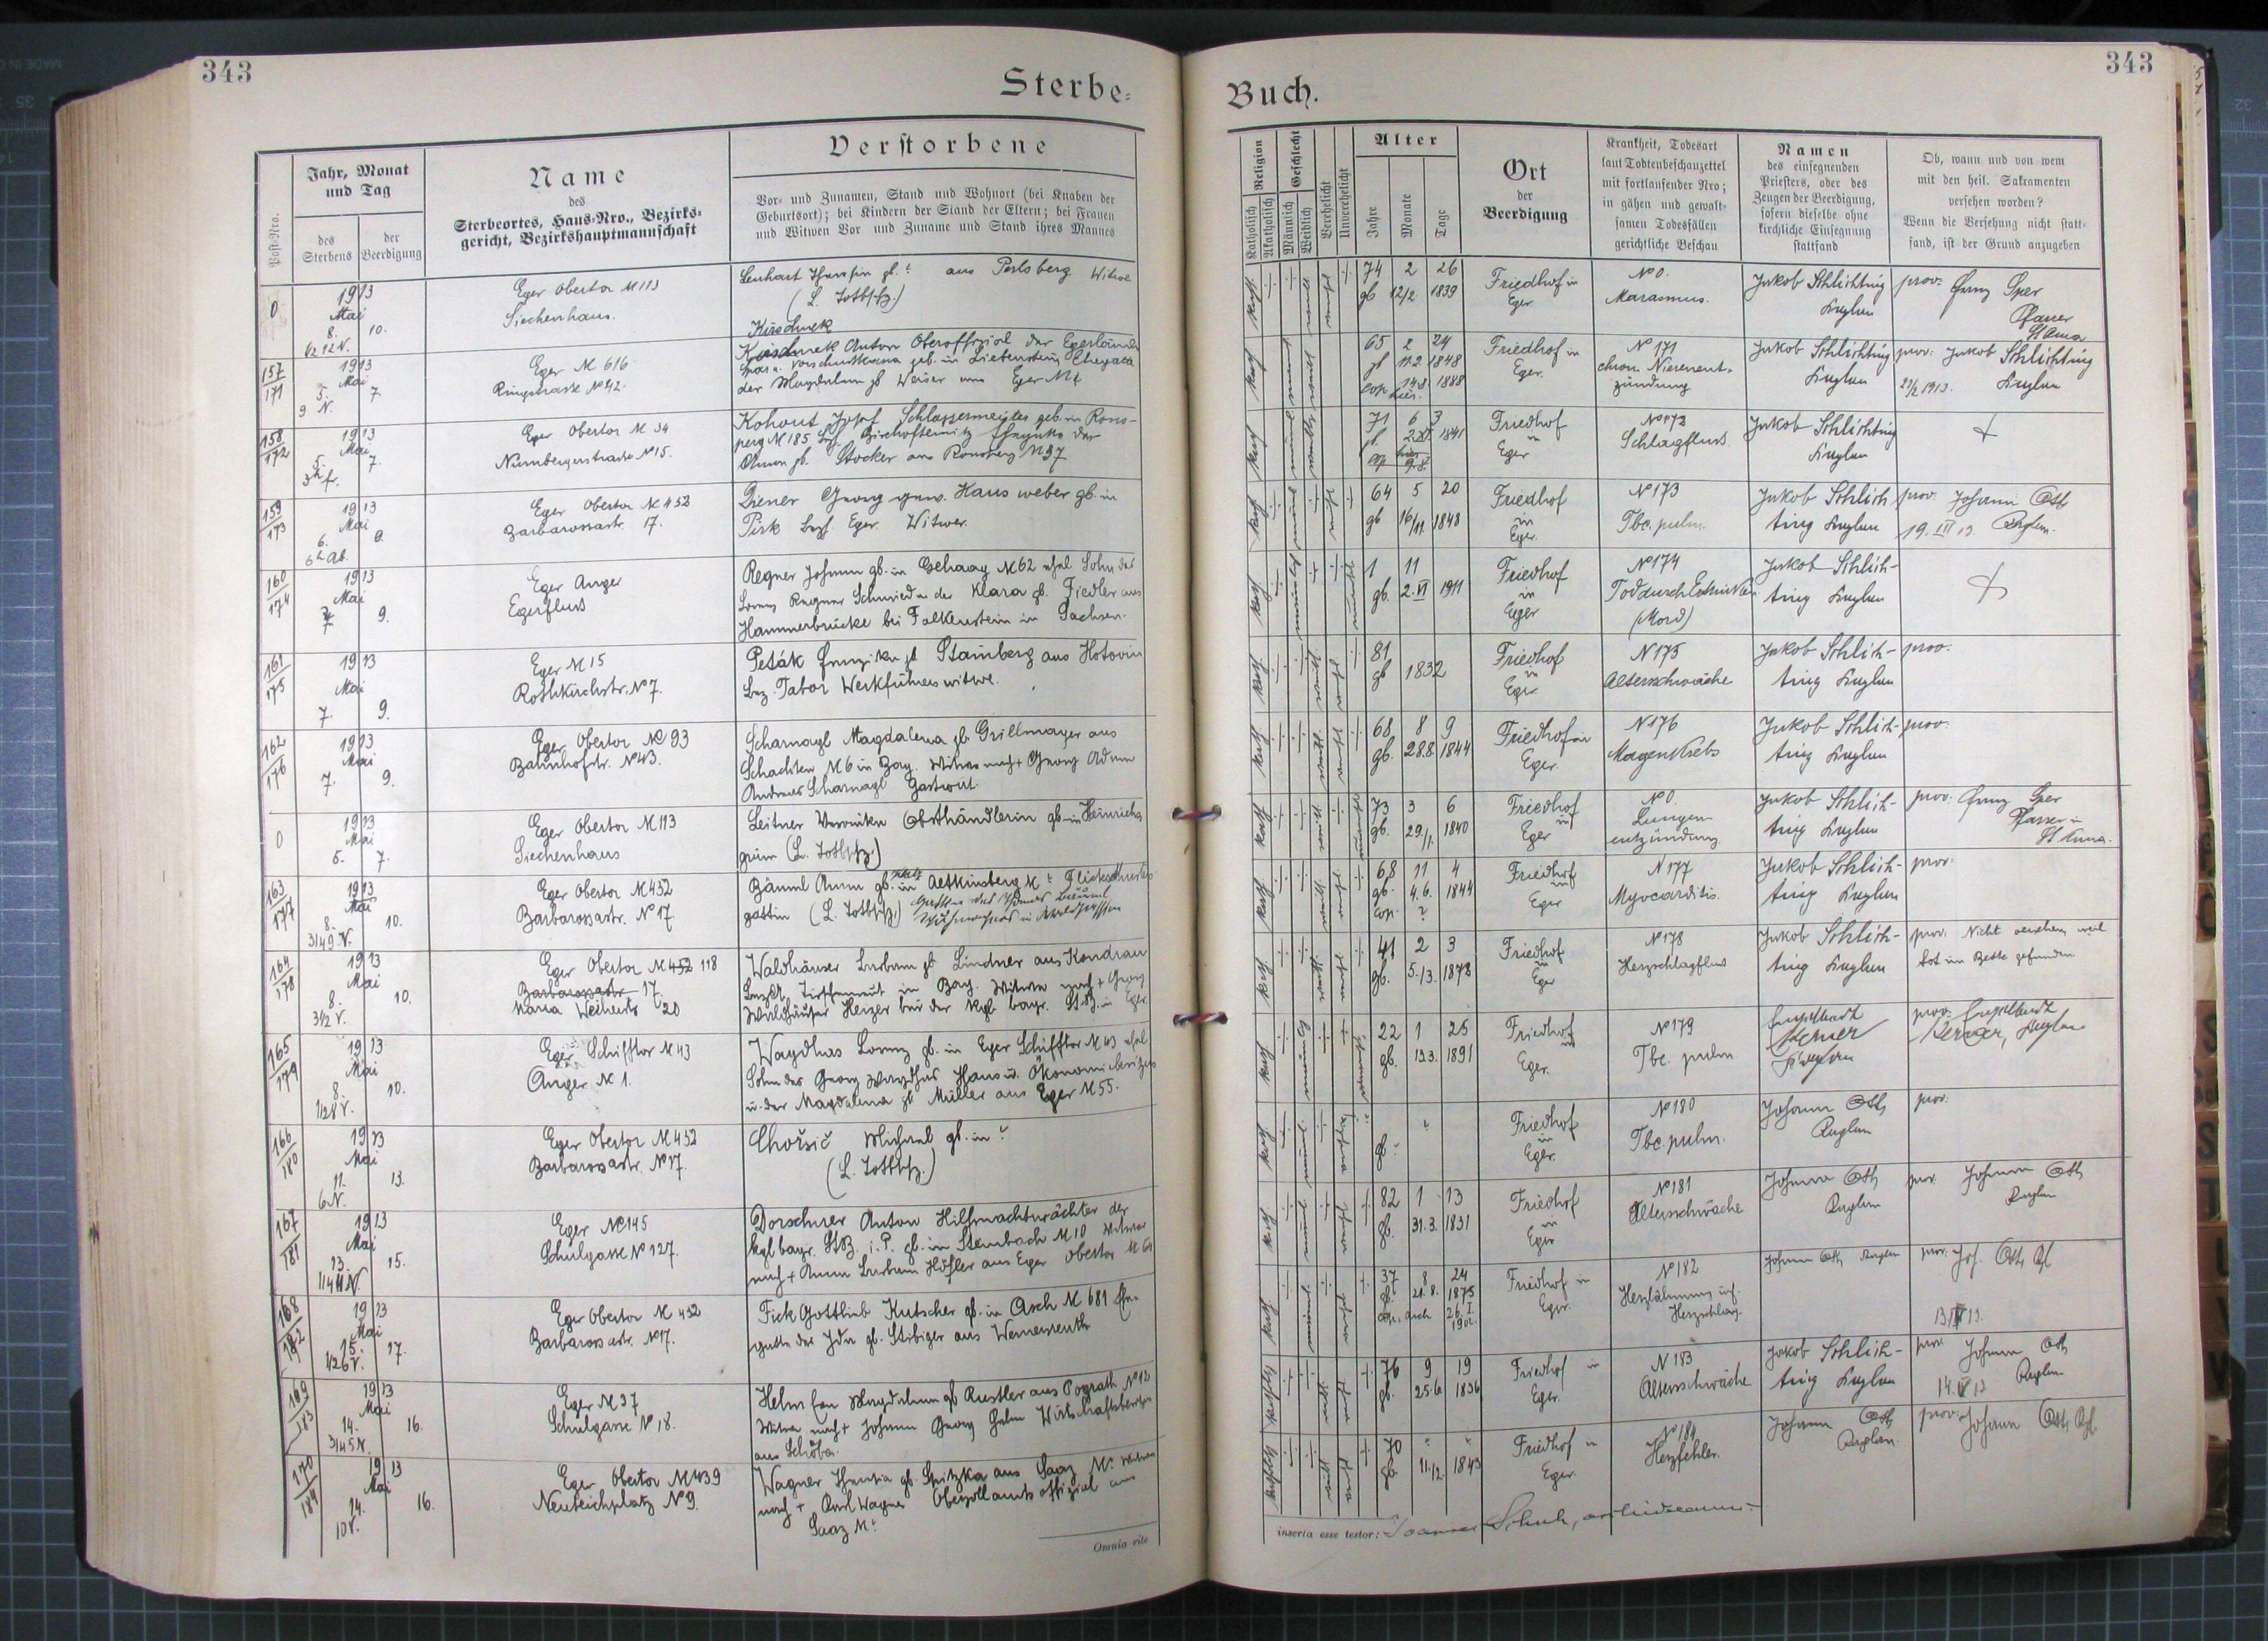 343
343
Sterbe=
Buch.
Post-Nro.
Jahr, Monat
und Tag
des
Sterbens
der
Beerdigung
Name
des
Sterbeortes, Haus-Nro., Bezirks=
gericht, Bezirkshauptmannschaft
Verstorbene
Vor- und Zunamen, Stand und Wohnort (bei Knaben der
Geburtsort); bei Kindern der Stand der Eltern; bei Frauen
und Witwen Vor und Zuname und Stand ihres Mannes
Religion
Katholisch
Akatholisch
Geschlecht
Männlich
Weiblich
Verehelicht
Unverehelicht
Alter
Jahre
Monate
Tage
Ort
der
Beerdigung
Krankheit, Todesart
laut Todtenbeschauzettel
mit fortlaufender Nro;
in gähen und gewalt=
samen Todesfällen
gerichtliche Beschau
Namen
des einsegnenden
Priesters, oder des
Zeugen der Beerdigung,
sofern dieselbe ohne
kirchliche Einsegnung
stattfand
Ob, wann und von wem
mit den heil. Sakramenten
versehen worden?
Wenn die Versehung nicht statt=
fand, ist der Grund anzugeben
0
1913
Mai
8. 10.
1/2 12 N.
Eger Obertor № 113
Siechenhaus.
Lenhart Theresia gb. ? aus Perlsberg Witwe
(L. Totbschz.)
74 2 26
gb 12/2 1839
Friedhof in
Eger
№ 0.
Marasmus.
Jakob Schlichting
Kaplan
prov: Franz Sper
Pfarrer
St Anna
157
171
1913
Mai
5. 7.
9 N.
Eger № 616
Ringstrasse № 42.
Kirschnek
Kirschnek Anton Oberoffizial der Egerländer
Spar u. Vorschusskassa geb. in Liebenstein Ehegatte
der Magdalena gb Weiser aus Eger №
65 2 24
gb 11.2 1848
cop. hier. 14.8 1888
Friedhof in
Eger.
№ 171
chron. Nierenent-
zündung
Jakob Schlichting
Kaplan
prov: Jakob Schlichting
Kaplan
158
172
1913
Mai
5. 7.
3h fr.
Eger Obertor № 34
Nürnbergerstrasse № 15.
Kohout Josef Schlossermeister geb. in Rons-
perg № 185 Bez. Bischofteinitz Ehegatte der
Anna gb. Stocker aus Ronsperg № 37
71 6 3
gb 2.XI 1841
cop hier 9.8.
Friedhof
in
Eger
№ 172
Schlagfluss
Jakob Schlichting
Kaplan
159
173
1913
Mai
6. 9.
6h Ab.
Eger Obertor № 452
Barbarossastr. 17.
Diener Georg gew. Hausweber gb. in
Pirk Bez. Eger. Witwer.
64 5 20
gb 16/11 1848
Friedhof
in
Eger.
№ 173
Tbc. pulm.
Jakob Schlich
ting Kaplan
prov: Johann Oth
19. III 13. Kaplan.
160
174
1913
Mai
7 9.
Eger Anger
Egerfluss
Regner Johann gb. in Gehaag № 62 ehel Sohn des
Lorenz Regner Schmied u. der Klara gb. Fiedler aus
Hammerbrücke bei Falkenstein in Sachsen.
1 11
gb. 2.VI 1911
Friedhof
in
Eger
№ 174
Tod durch Ertrinken
(Mord)
Jakob Schlich-
ting Kaplan
161
175
1913
Mai
7. 9.
Eger № 15
Rothkirchstr. № 7.
Peták Franziska gb Stamberg aus Hotovin
Bez. Tabor Werkführerswitwe.
81
gb 1832
Friedhof
in
Eger.
№ 175
Altersschwäche
Jakob Schlich-
ting Kaplan
prov.
162
176
1913
Mai
7. 9.
Eger Obertor № 93
Bahnhofstr. № 43.
Scharnagl Magdalena gb. Grillmayer aus
Schachten № 6 in Bay. Witwe nach + Georg Adam
Andreas Scharnagl Gastwirt.
68 8 9
gb. 28.8. 1844
Friedhof in
Eger.
№ 176
Magenkrebs
Jakob Schlich-
ting Kaplan
prov.
0
1913
Mai
5. 7.
Eger Obertor № 113
Siechenhaus
Leitner Veronika Obsthändlerin gb in Heinrichs
grün (L. Totbschz.)
73 3 6
gb. 29./1. 1840
Friedhof
in
Eger
№ 0.
Lungen
entzündung
Jakob Schlich-
ting Kaplan
prov: Franz Sper
Pfarrer in
St Anna.
163
177
1913
Mai
8. 10.
3/4 9 N.
Eger Obertor № 452
Barbarossastr. № 17
Bäuml Anna gb. in Altkinsberg № ? Flickschneiders
gattin (L. Totbschz.)
68 11 4
gb. 4.6. 1844
cop. ?
Friedhof
in
Eger
№ 177
Myocarditis.
Jakob Schlich-
ting Kaplan
prov.
164
178
1913
Mai
8. 10.
3 1/2 V.
Eger Obertor № 452 118
Barbarossastr 17.
Maria Weiherstr 20
Waldhäuser Barbara gb Lindner aus Kondrau
Bez. Tirschenreut in Bay. Witwe nach + Georg
Waldhäuser Heizer bei der kgl. bayr. St. B. in Eger.
41 2 3
gb. 5./3. 1872
Friedhof
in
Eger
№ 178
Herzschlagfluss
Jakob Schlich-
ting Kaplan
prov: Nicht versehen weil
tot im Bette gefunden
165
179
1913
Mai
8. 10.
1/2 8 V.
Eger Schifftor № 43
Anger № 1.
Waydhas Lorenz gb. in Eger Schifftor № 43 ehel
Sohn des Georg Waydhas Haus u. Ökonomiebesitzers
u. der Magdalena gb Müller aus Eger № 55.
22 1 25
gb. 13.3. 1891
Friedhof
in
Eger.
№ 179
Tbc. pulm
Engelbert
Kerner
Kaplan
prov: Engelbert
Kerner, Kaplan
166
180
1913
Mai
11. 13.
6 N.
Eger Obertor № 452
Barbarossastr. № 17.
Chořsič Michael gb. in ?
(L. Totbschz.)
gb. ?
Friedhof
in
Eger.
№ 180
Tbc. pulm.
Johann Oth
Kaplan
prov:
167
181
1913
Mai
13. 15.
1/4 11 N.
Eger № 145
Schulgasse № 127.
Dorschner Anton Hilfsnachtwächter der
kgl bayr. St B. i. P. gb. in Steinbach № 10 Witwer
nach + Anna Barbara Höfler aus Eger Obertor № 64
82 1 13
gb. 31.3. 1831
Friedhof
in
Eger
№ 181
Altersschwäche
Johann Oth
Kaplan
prov. Johann Oth
Kaplan
168
182
1913
Mai
15. 17.
1/2 6 V.
Eger Obertor № 452
Barbarossastr. № 17.
Fick Gottlieb Kutscher gb. in Asch № 681 Ehe-
gatte der Ida gb. Stibiger aus Wernersreuth
37 8 24
gb. 21.8. 1875
cop. Asch 26.I.
1902.
Friedhof in
Eger.
№ 182
Herzlähmung inf.
Herzschlag.
Johann Oth Kaplan
prov: Joh. Oth Kpl
169
183
1913
Mai
14. 16.
3/4 5 N.
Eger № 37
Schulgasse № 18.
Helm Eva Magdalena gb Rustler aus Pograth № 12
Witwe nach + Johann Georg Helm Wirtschaftsbesitzer
aus Schöba.
76 9 19
gb. 25.6 1836
Friedhof in
Eger.
№ 183
Altersschwäche
Jakob Schlich-
ting Kaplan
prov: Johann Oth
14. V 13 Kaplan
170
184
1913
Mai
14. 16.
10 V.
Eger Obertor № 439
Neuteichplatz № 9.
Wagner Theresia gb. Spitzka aus Saaz № ? Witwe
nach + Karl Wagner Oberzollamtsoffizial aus
Saaz № ?
70 ? ?
gb. 11./12. 1843
Friedhof in
Eger.
№ 184
Herzfehler.
Johann Oth
Kaplan.
prov: Johann Oth Kpl.
Omnia rite
inserta esse testor: Joannes Schuh, archidecanus.